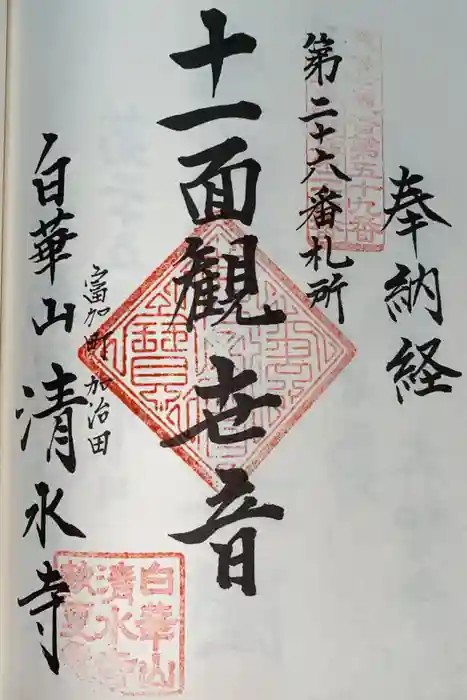 奉納経
第二十六番札所
十一面観世音
富加町 加治田
白華山 清水寺
白華山
清水寺